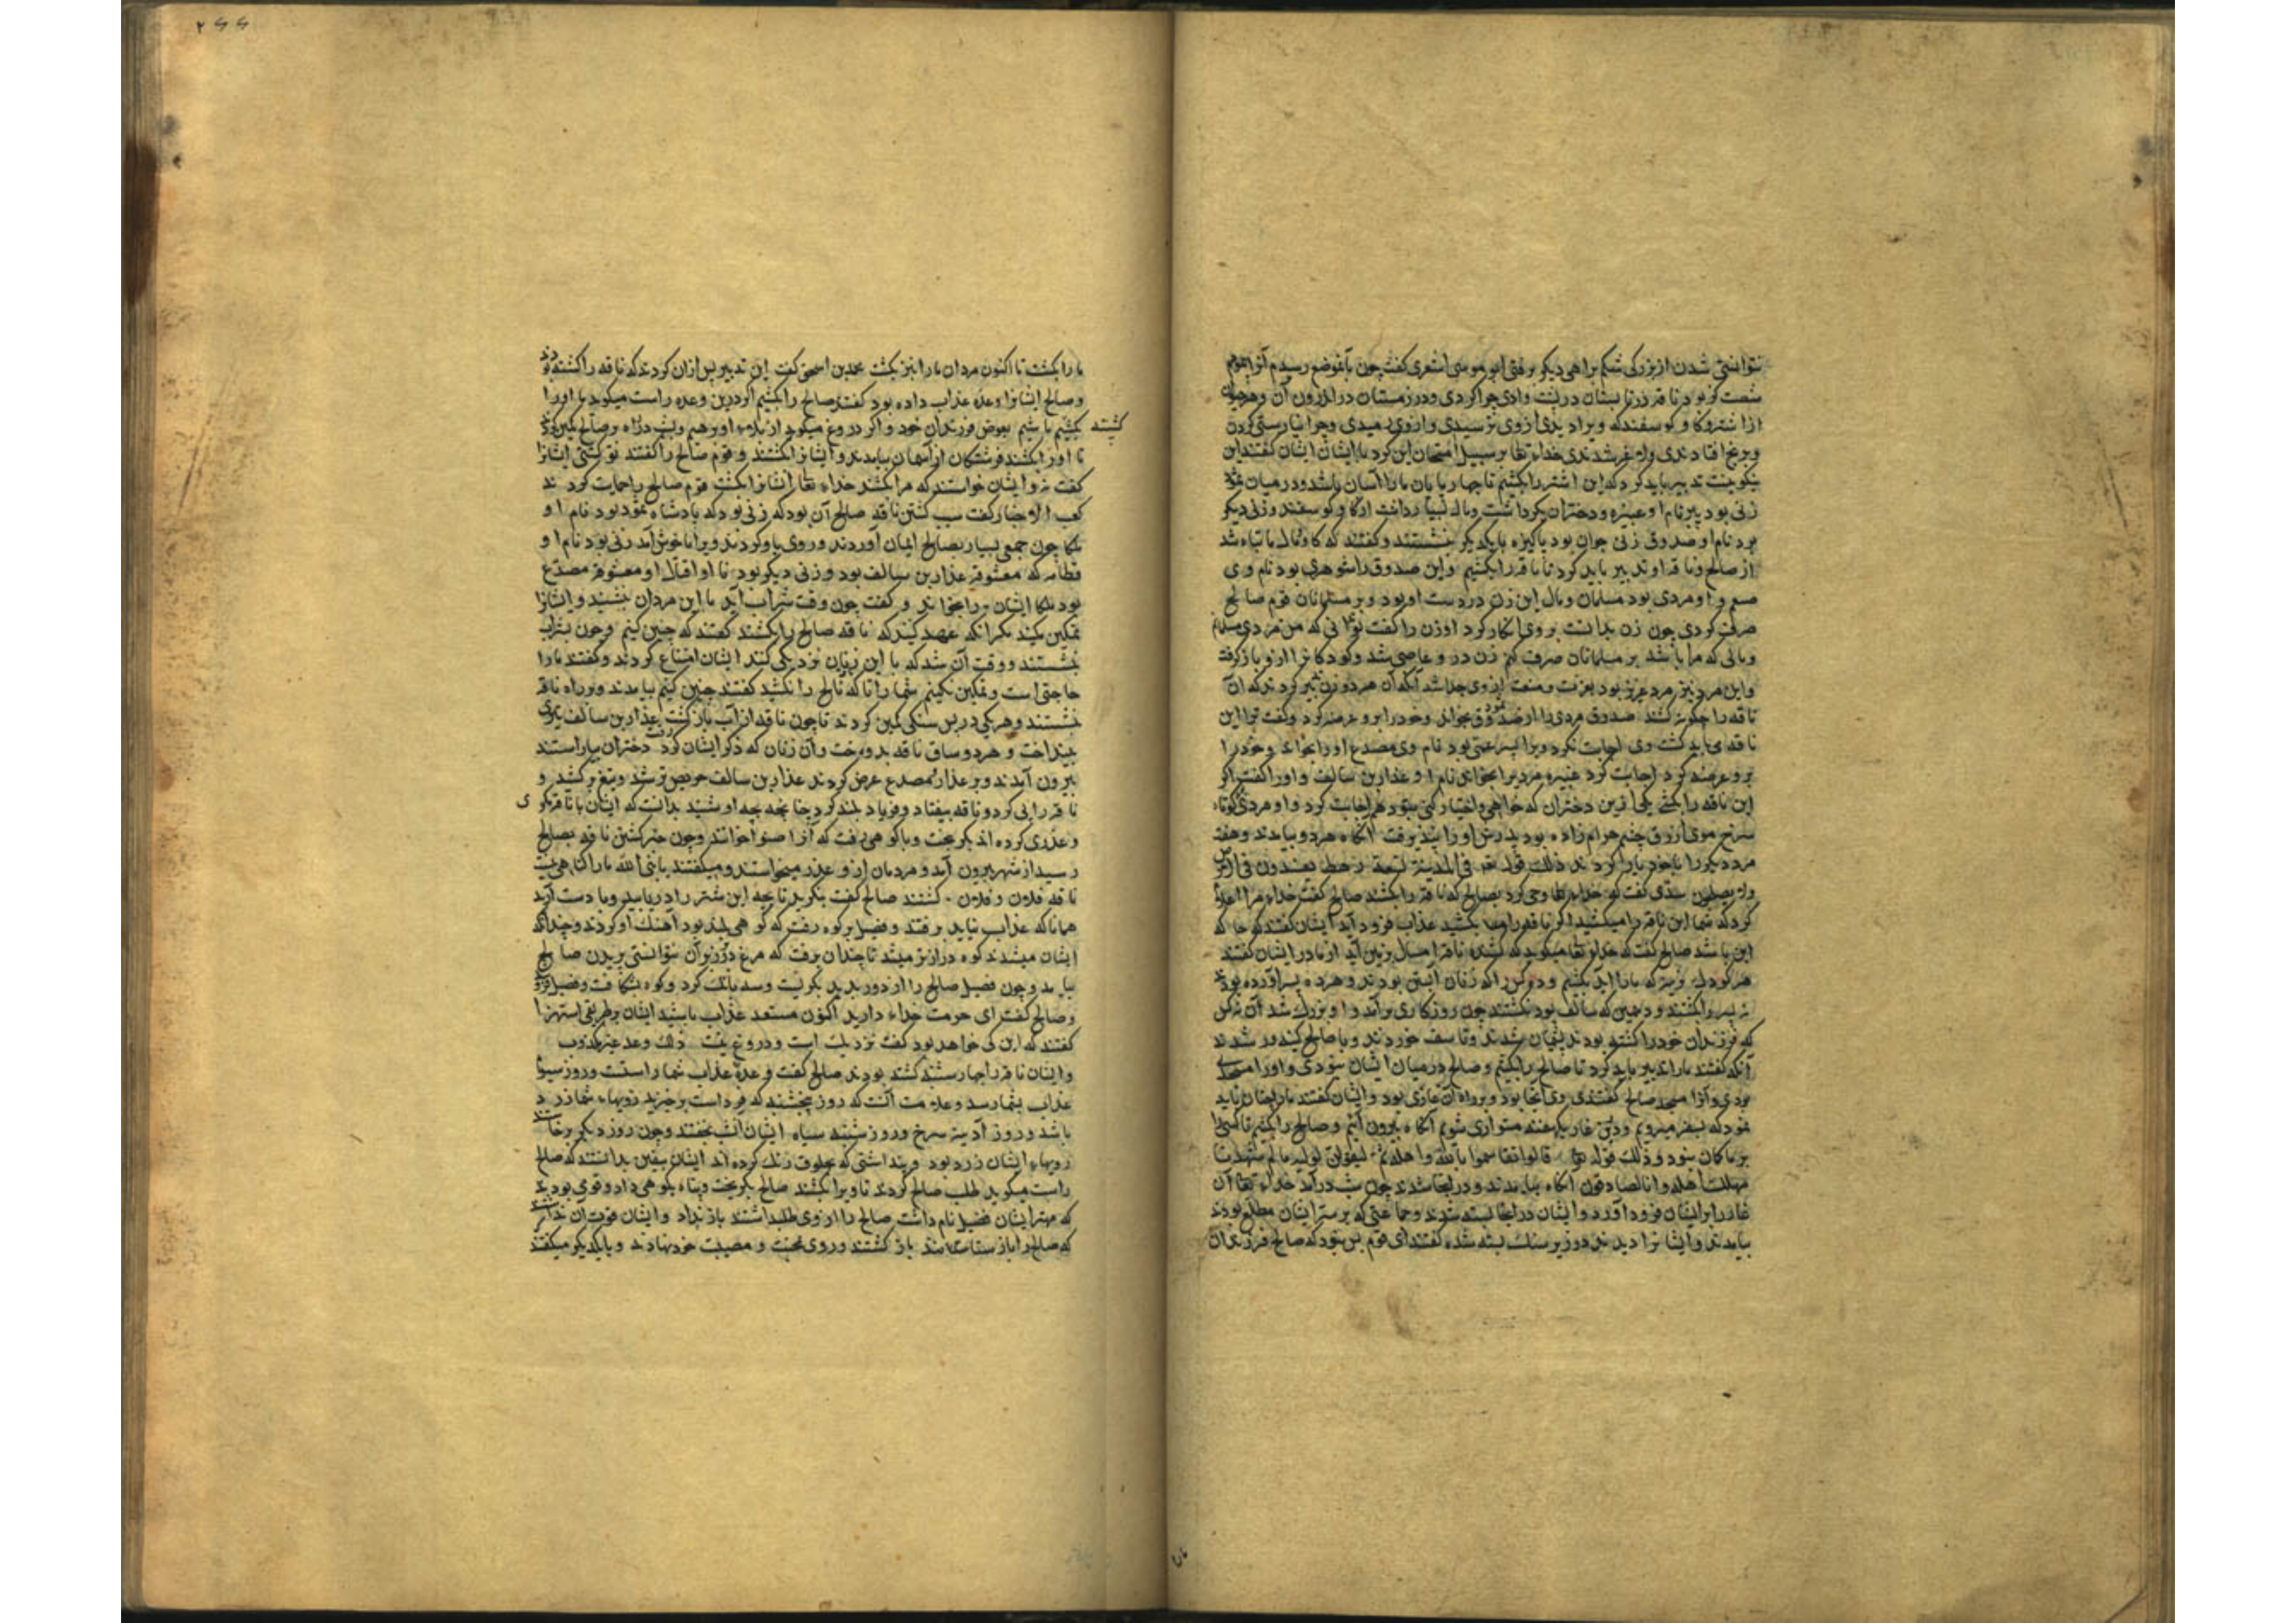 نتوانستی شدن از بزرکی شکم براهی دیکر برفتی ابو موسی اشعری کفت چون بآنموضع رسیدم آنرا بپیمودم
شصت کز بود ناقه در تابستان در پشت وادی چرا کردی و در زمستان در اندرون آن و هر حیوان
از اشتر و کاو و کوسفند که ویرا دیدی از وی بترسیدی و از وی رمیدی و چرا نیارستی کردن
و برنج افتادندی و لاغر شدندی خداء تعا بر سبیل امتحان این کرد با ایشان ایشان کفتند این
نیکو نیست تدبیر باید کرد که این اشتر را بکشیم تا چهارپایان ما را آسان باشد و در میان ثمود
زنی بود پیر نام او عنیزه و دختران نیکو داشت و مال بسیار داشت از کاو و کوسفند و زنی دیکر
بود نام او صدوق زنی جوان بود پاکیزه با یکدیکر بنشستند و کفتند که کاو و مال ما تباه شد
از صالح و ناقه او تدبیر باید کرد تا ناقه را بکشیم و این صدوق را شوهری بود نام وی
صنم و او مردی بود مسلمان و مال این زن در دست او بود و بر مسلمانان قوم صالح
صرف کردی چون زن بدانست بر وی انکار کرد او زن را کفت تو دانی که من مردی مسلمانم
و مالی که مرا باشد بر مسلمانان صرف کنم زن در و عاصی شد و کودکانرا ازو باز کرفت
و این مرد نیز مرد عزیز بود بعزت و منعت از وی جدا شد آنکه آن هر دو زن تدبیر کردند که آن
ناقه را چکونه کشند صدوق مردی را از صدوق بخواند و خود را برو عرضه کرد و کفت ترا این
ناقه می باید کشت وی اجابت نکرد ویرا پسر عمی بود نام وی مصدع او را بخواند و خود را
برو عرضه کرد اجابت کرد عنیزه مردیرا بخواند نام او غدار بن سالف و او را کفت اکر
این ناقه را بکشی یکی ازین دختران که خواهی و اختیار کنی بتو دهم اجابت کرد و او مردی کوتاه
سرخ موی ازرق چشم حرام زاده بود پدرش او را نپذیرفت آنکاه هر دو بیامدند و هفت
مرد دیکر را با خود یار کردند ذلک قوله تعه فی المدینة تسعة رهط یفسدون فی الارض
ولا یصلحون سدّی کفت که خداء تعا وحی کرد بصالح که ناقه را بکشند صالح کفت خداء مرا اعلام
کرد که شما این ناقه را میکشید اکر ناقه را بکشید عذاب فرود آید ایشان کفتند که حاشا که
این باشد صالح کفت که خداء تعا میکوید که کشنده ناقه امسال بزمین آید از مادر ایشان کفتند
هر کودک نرینه که ما را آید بکشیم و ده کس را که زنان آبستن بودند و هر ده پسر آورده بودند
نه پسر را بکشتند و دهمین که سالف بود نکشتند چون روزکاری برآمد و او بزرک شد آن نه کس
که فرزندان خود را کشته بودند پشیمان شدند و تاسف خوردند و با صالح کینه ور شدند
آنکه کفتند ما را تدبیر باید کرد تا صالح را بکشیم و صالح در میان ایشان نبودی و او را مسجدی
بودی و آنرا مسجد صالح کفتندی وی آنجا بود و برراه آن غاری بود و ایشان کفتند ما را چنان باید
نمود که بسفر میرویم و درین غار یکهفته متواری شویم آنکاه بیرون آییم و صالح را بکشیم تا کسی را
بر ما کمان نبود و ذلک قوله تعا قالوا تقاسموا بالله واهله ثم لیقولن لولیه ما لم شهدنا
مهلک اهله وانا لصادقون آنکاه بیامدند و درآنجا شدند چون شب درآمد خداء تعا آن
غار را بر ایشان فرود آورد و ایشان در آنجا بسته شدند و جماعتی که بر سر ایشان مطلع بودند
بیامدند و ایشانرا دیدند در زیر سنک بسته شده کفتند ای قوم بس نبود که صالح فرزندان
۲۶۶
ما را بکشت تا اکنون مردان ما را نیز بکشت محمد بن اسحق کفت این تدبیر پس ازان کردند که ناقه را کشته بودند
و صالح ایشانرا وعده عذاب داده بود کفتند صالح را بکشیم اکر درین وعده راست میکوید ما او را
کشته بکشیم باشیم بعوض فرزندان خود و اکر دروغ میکوید از بلاء او رهیم و بشب در راه صالح کمین کردند
تا او را بکشند فرشتکان از آسمان بیامدند و ایشانرا بکشتند و قوم صالح را کفتند تو کشتی ایشانرا
کفت نه و ایشان خواستند که مرا بکشند خداء تعا ایشانرا بکشت قوم صالح را حمایت کردند
کعب الاخبار کفت سبب کشتن ناقه صالح آن بود که زنی بود که پادشاه ثمود بود نام او
ملکا چون جمعی بسیار بصالح ایمان آوردند و روی باو کردند ویرا ناخوش آمد زنی بود نام او
قطامه که معشوقه غدار بن سالف بود و زنی دیکر بود نام او اقبال او معشوقه مصدع
بود ملکا ایشان را بخواند و کفت چون وقت شراب آید با این مردان بنشینید و ایشانرا
تمکین مکنید مکر آنکه عهد کنید که ناقه صالح را بکشند کفتند که چنین کنیم و چون بشراب
بنشستند و وقت آن شد که با این زنان نزدیکی کنند ایشان امتناع کردند و کفتند ما را
حاجتی است و تمکین نکنیم شما را تا که ناقه صالح را نکشید کفتند چنین کنیم بیامدند و بر راه ناقه
بنشستند و هر یکی در پس سنکی کمین کردند تا چون ناقه از آب باز کشت غدار بن سالف تیری
بینداخت و هر دو ساق ناقه بدوخت و آن زنان که ذکر ایشان کردیم دختران بیاراستند
بیرون آمدند و بر غدار و مصدع عرض کردند غدار بن سالف حریص تر شد و تیغ برکشید و
ناقه را پی کرد و ناقه بیفتاد و فریاد بلند کرد چنانچه بچه او شنید بدانست که ایشان با ناقه مکری
و غدری کرده اند بکریخت و با کوهی رفت که آنرا صنو خوانند و چون خبر کشتن ناقه بصالح
رسید از شهر بیرون آمد و مردمان ازو عذر میخواستند و میکفتند یا نبی الله ما را کناهی نیست
ناقه فلان و فلان کشتند صالح کفت بنکرید تا بچه این شتر را دریابید و با دست آرید
همانا که عذاب نیاید برفتند و فصیل بر کوه رفت که کوهی بلند بود آهنک او کردند و چندانکه
ایشان میشدند کوه درازتر میشد تا چندان برفت که مرغ در زبر آن نتوانستی پریدن صالح
بیامد و چون فصیل صالح را از دور بدید بکریست و سه بانک کرد و کوه بشکافت و فصیل فرو شد
و صالح کفت ای حرمت خداء دارید اکنون مستعد عذاب باشید ایشان بر طریق استهزا
کفتند که این کی خواهد بود کفت نزدیک است و دروغ نیست ذلک وعد غیر مکذوب
و ایشان ناقه را چهارشنبه کشته بودند صالح کفت وعده عذاب شما راست و روز سیوم
عذاب بشما رسد و علامت آنست که روز پنجشنبه که فرداست برخیزید رویهاء شما زرد
باشد و روز آدینه سرخ و روز شنبه سیاه ایشان آنشب بخفتند و چون روز دیکر برخاستند
رویهاء ایشان زرد بود و پنداشتی که بخلوق رنک کرده اند ایشان بیقین بدانستند که صالح
راست میکوید طلب صالح کردند تا ویرا بکشند صالح بکریخت و پناه بکوهی داد و قومی بودند
که مهتر ایشان فضیل نام داشت صالح را از وی طلب داشتند باز نداد و ایشان قوت آن نداشتند
که صالح را باز ستانند باز کشتند و روی بمحنت و مصیبت خود نهادند و با یکدیکر میکفتند